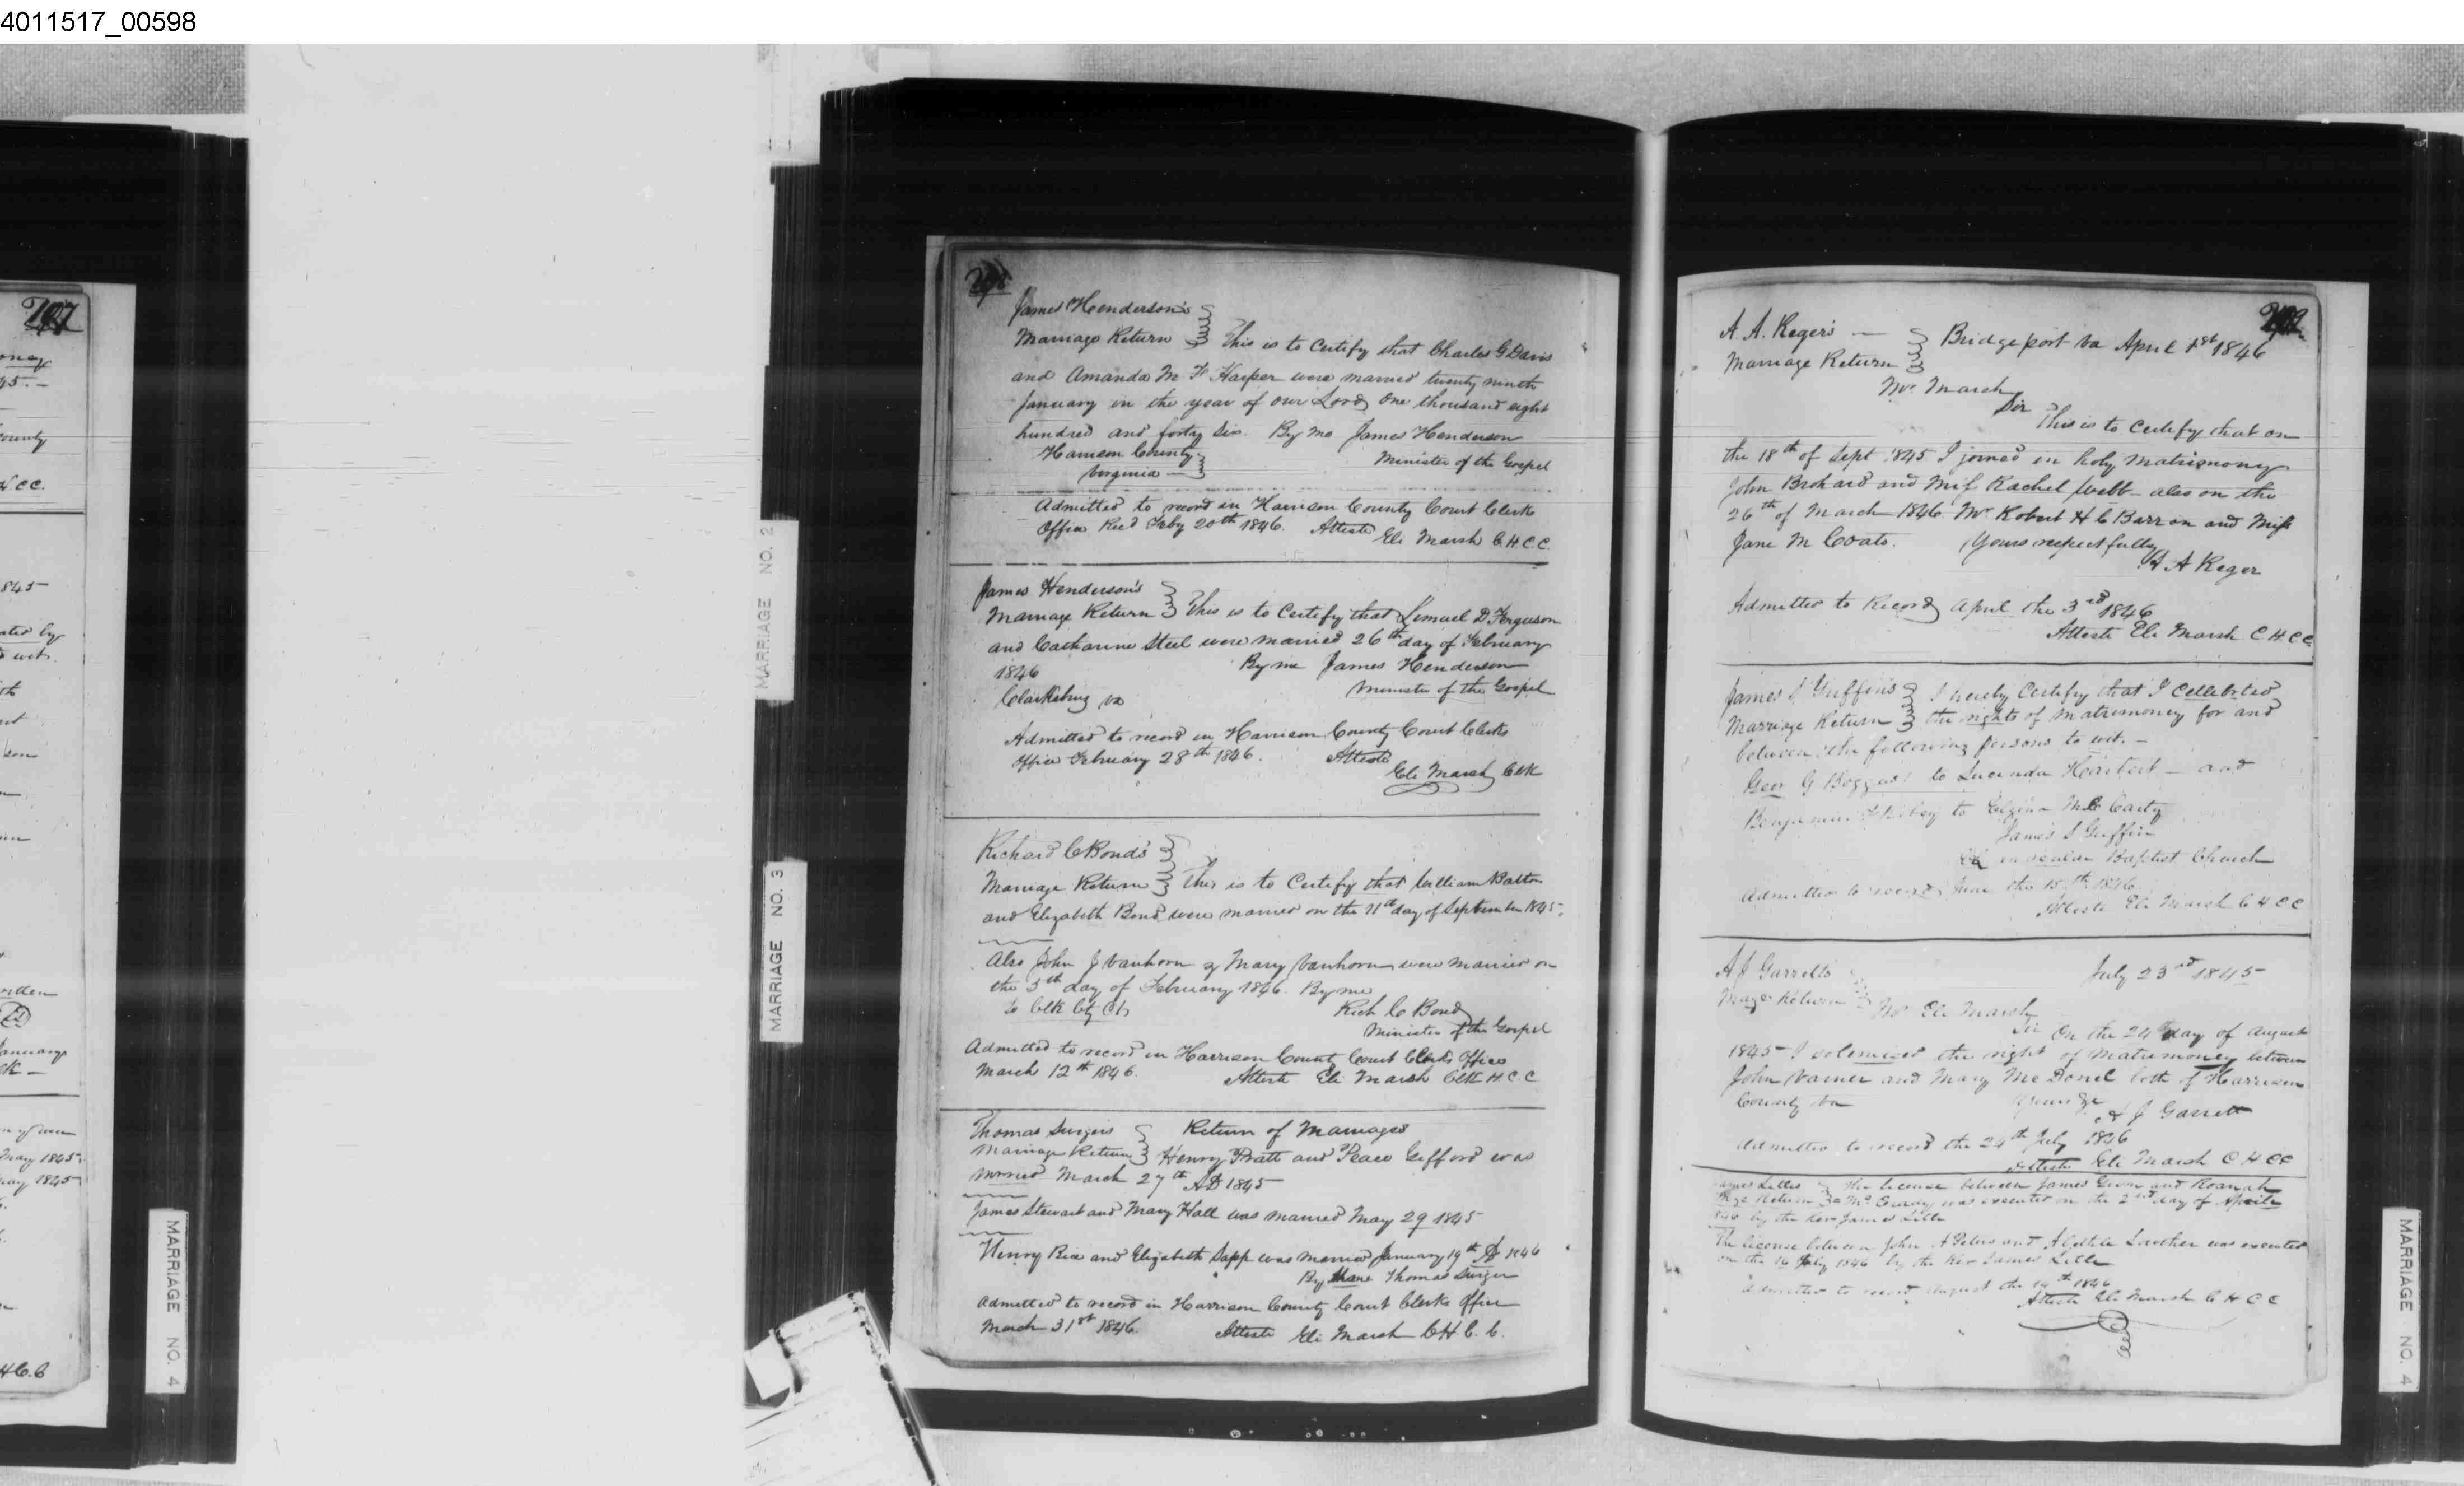 4011517_00598
297
45.-
county
H.C.C.
1845
ated by
to wit.
son
written
January
May 1845
May 1845
H.C.C
MARRIAGE NO. 4
MARRIAGE NO. 2
MARRIAGE NO. 3
James Henderson's
Marriage Return } This is to Certify that Charles G Davis
and Amanda M F Harper were married twenty ninth
January in the year of our Lord One thousand eight
hundred and forty Six. By me James Henderson
Harrison County
Virginia — } Minister of the Gospel
Admitted to record in Harrison County Court Clerks
Office Rec'd Feby 20th 1846. Atteste Eli Marsh C.H.C.C.
James Henderson's
Marriage Return } This is to Certify that Lemuel D Ferguson
and Catharine Steel were married 26th day of February
1846 By me James Henderson
Clarksburg Va Minister of the Gospel
Admitted to record in Harrison County Court Clerks
Office February 28th 1846. Atteste
Eli Marsh Clk
Richard C Bond's
Marriage Return } This is to Certify that William Batton
and Elizabeth Bond were married on the 11th day of September 1845.
Also John J Vanhorn & Mary Vanhorn were married on
the 5th day of February 1846. By me
To Clk Cty Ct Rich C Bond
Minister of the Gospel
Admitted to record in Harrison County Court Clerks Office
March 12th 1846. Atteste Eli Marsh Clk H.C.C
Thomas Return of Marriages
Marriage Return } Henry Pratt and Peace Gifford was
Married March 27th AD 1845
James Stewart and Mary Hall was married May 29 1845
Henry Rice and Elizabeth Sapp was married January 19th AD 1846
By Thomas
Admitted to record in Harrison County Court Clerks Office
March 31st 1846. Atteste Eli Marsh C.H.C.C.
A. A. Reger's —
Marriage Return } Bridgeport Va April 1st 1846
Mr Marsh
Sir
This is to Certify that on
the 18th of Sept 1845 I joined in holy matrimony
John Brohard and Miss Rachel Webb - also on the
26th of March 1846 Mr Robert H C Barron and Miss
Jane M Coats. Yours respectfully
A A Reger
Admitted to Record April the 3rd 1846
Atteste Eli Marsh C H C C
James S Griffin's } I hereby Certify that I Cellebrted
Marriage Return } the rights of matrimoney for and
between the following persons to wit. -
Geor G Boggess to Lucinda — and
Benjamin to McCarty
James S Griffin
Baptist Church
Admitted to record June the 15th 1846
Atteste Eli Marsh C H C C
A J Garrett's July 23rd 1845
Mage Return } Mr Eli Marsh
Sir On the 24th day of August
1845 I solemnized the right of Matrimoney between
John Varner and Mary McDonel both of Harrison
County Va Yours &c
A J Garrett
Admitted to record the 24th July 1846
Atteste Eli Marsh C H C C
James The license between James and Roanah
Mage Return } was executed on the 2nd day of April
by the Rev James
The license between John A and Lowther was executed
on the 16 July 1846 by the Rev James
Admitted to record August the 19th 1846
Atteste Eli Marsh C H C C
MARRIAGE NO. 4